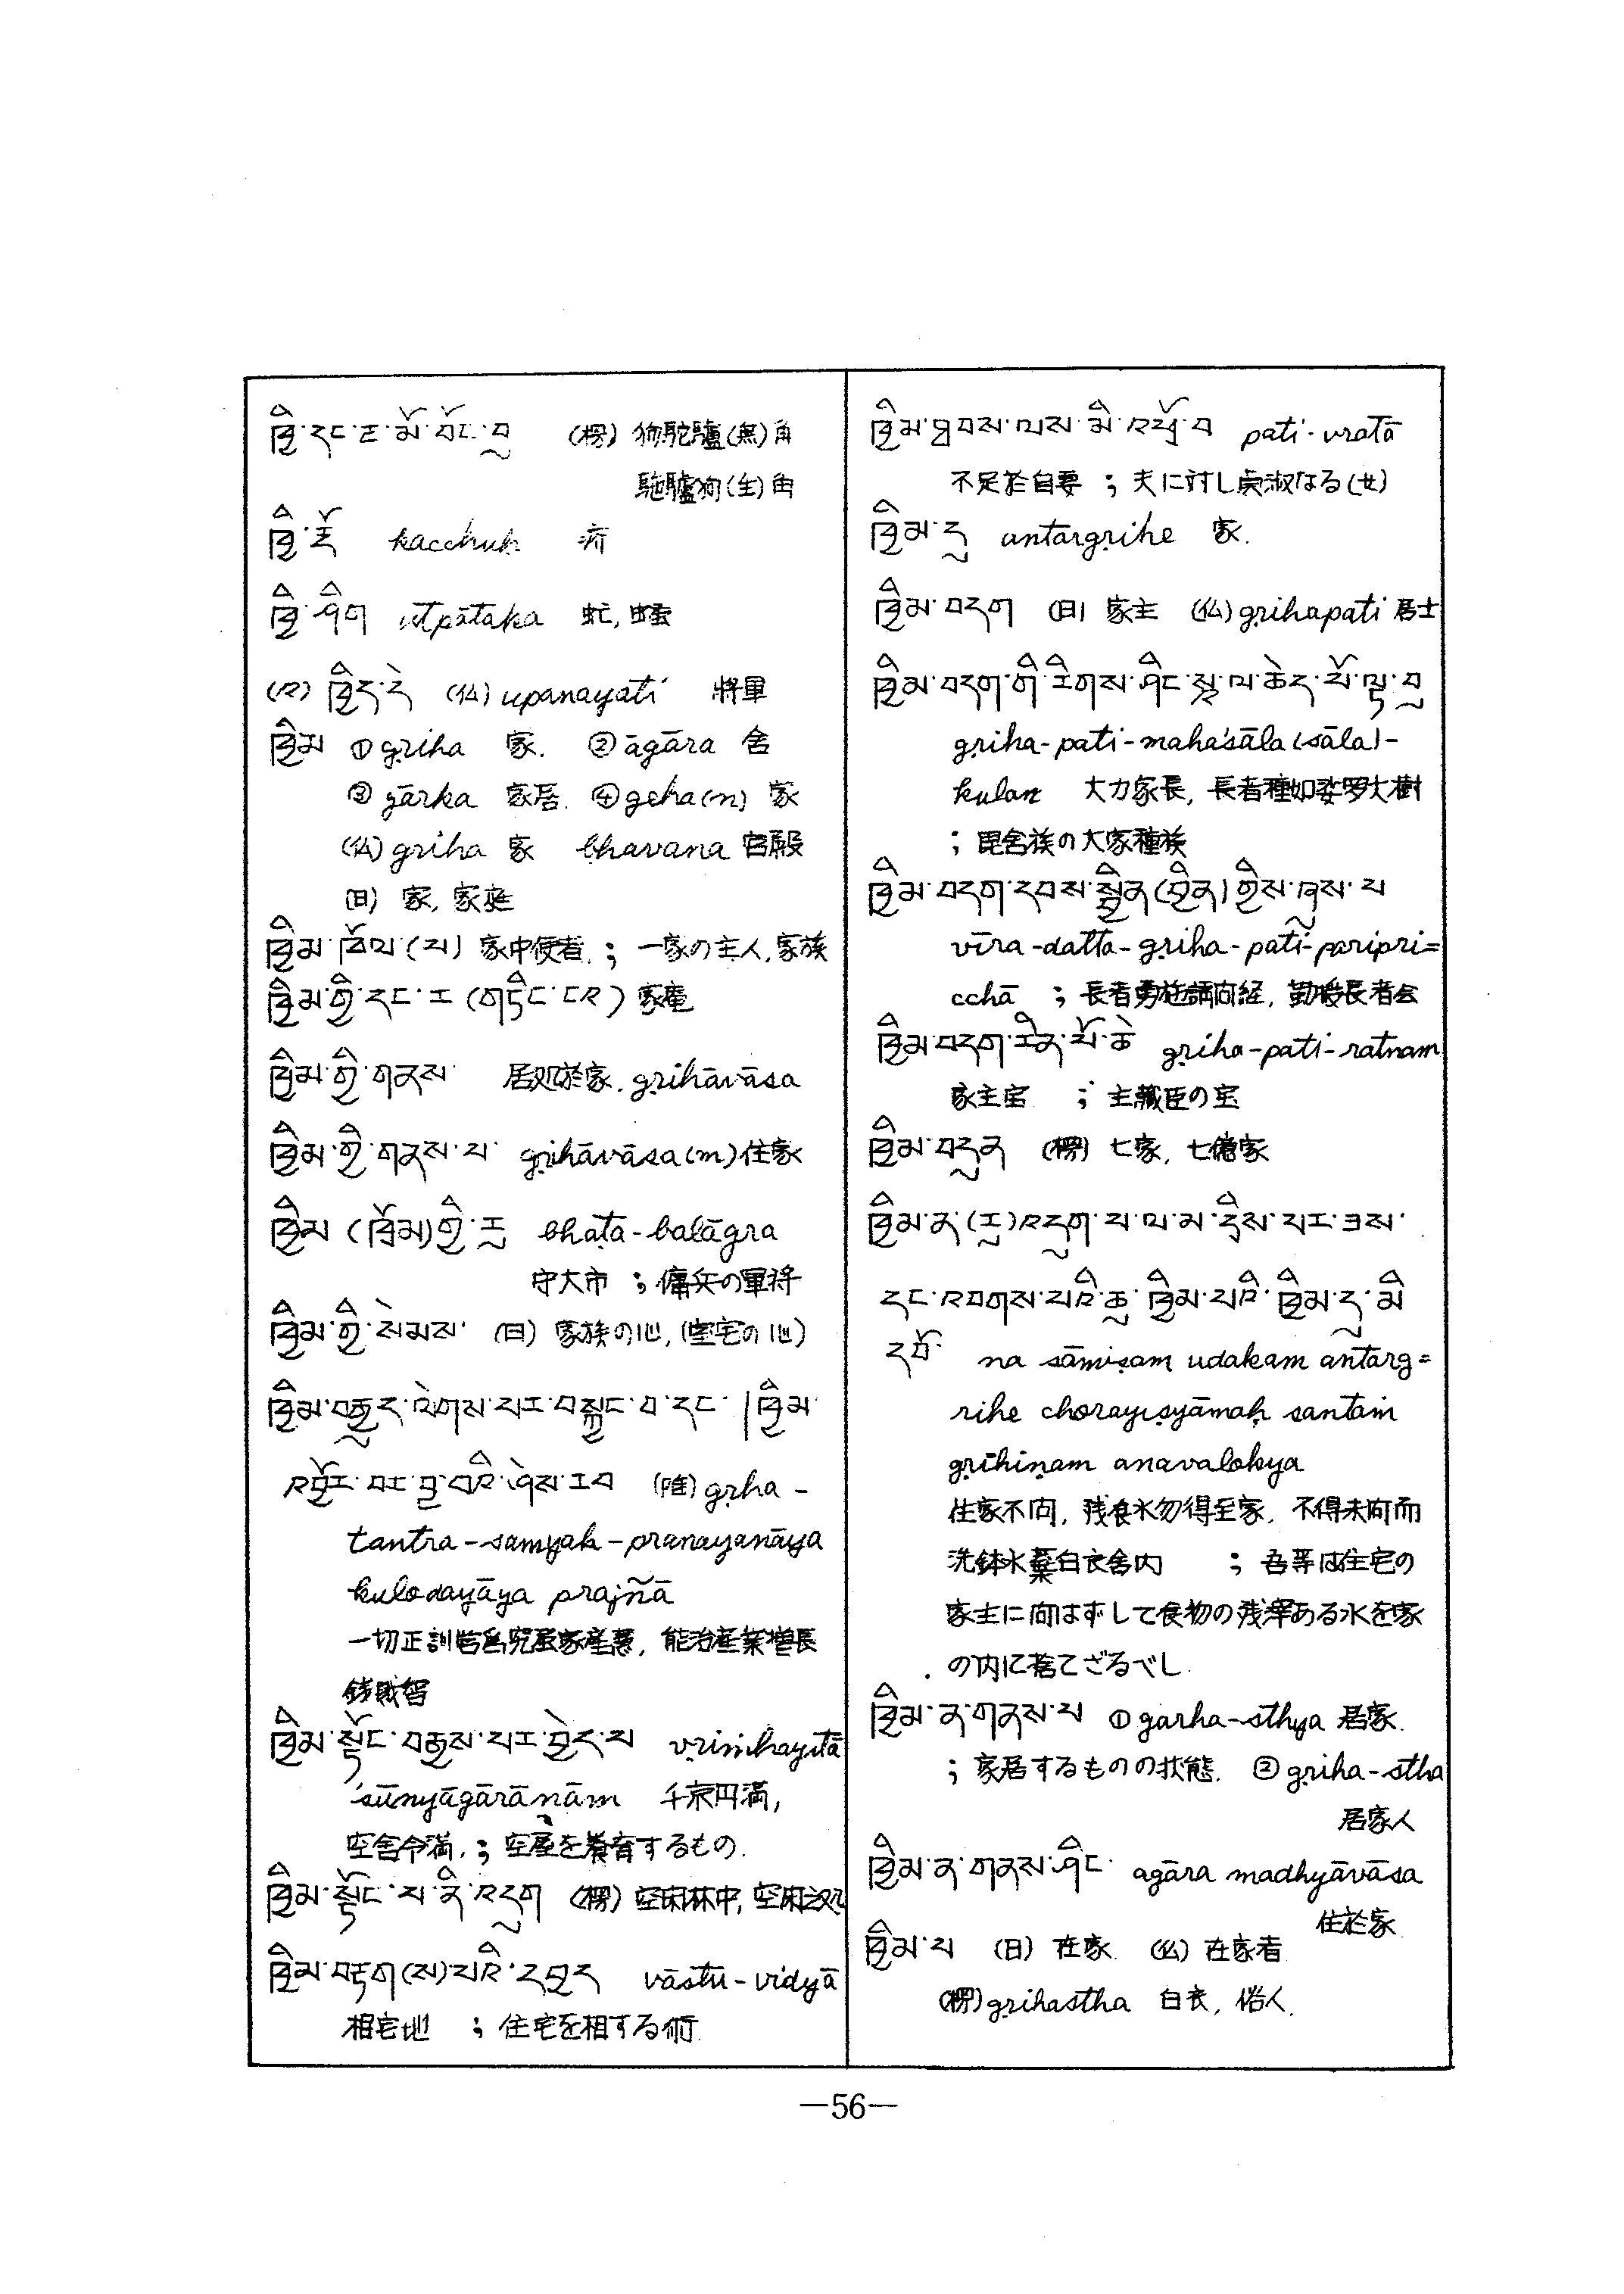 ཁྱི་དང་ང་མོ་བོང་བུ (楞) 狗駝驢(無)角
駝驢狗(生)角
ཁྱི་ངོ kacchuḥ 疥
ཁྱི་ཤིག utpātaka 虻, 蚤
(仏) upanayati 將
ཁྱིམ ① gṛiha 家. ② āgāra 舎
③ gārka 家居. ④ geha(m) 家
(仏) griha 家 bhavana 宮殿
(日) 家, 家庭
ཁྱིམ་ཁོལ་(པ) 家中使者. ; 一家の主人, 家族
ཁྱིམ་གྱི་དང་ར་(གཏིང་ངར)
ཁྱིམ་གྱི་གནས་ 居処於家. gṛihāvāsa
ཁྱིམ་གྱི་གནས་པ་ gṛihāvāsa(m) 住家
ཁྱིམ (ཁྲོམ)གྱི་རུ bhaṭa-balāgra
守大市 ; 傭兵の軍将
ཁྱིམ་གྱི་སེམས་ (日) 家族の心, (室宅の心)
ཁྱིམ་བརྒྱུད་ལེགས་པར་བསྐྱང་བ་དང་ | ཁྱིམ་
འབྱོར་བར་བྱ་བའི་ཤེས་རབ (唯) gṛha-
tantra-samyak-pranayanāya
kulodayāya prajñā
一切正訓 能治産業増長
銭賊智
ཁྱིམ་སྟོང་བརྒྱས་པར་བྱེད་པ vṛiṁhayitā
śūnyāgārānām 千家円満,
空舎令満. ; 空屋を養育するもの.
ཁྱིམ་སྟོང་པ་ནི་འདུག (楞) 空床林中, 空床之処
ཁྱིམ་བརྟག(ས)པའི་དཔྱད vāstu-vidyā
相宅地 ; 住宅を相する術.
ཁྱིམ་ཐབས་ལས་མི་འཕྱོ་བ pati-vratā
不足於自妻 ; 夫に対し貞淑なる(女)
ཁྱིམ་དུ antargṛihe 家.
ཁྱིམ་བདག (日) 家主 (仏) gṛihapati 居士
ཁྱིམ་བདག་གི་རིགས་ཤིང་སྰ་ལ་ཆེན་པོ་ལྟ་བུ
gṛiha-pati-mahāśāla(sāla)-
kulan 大力家長, 長者種如娑罗大樹
; 毘舎族の大家種族
ཁྱིམ་བདག་དཔས་སྦྱིན(བྱིན)གྱིས་ཞུས་པ
vīra-datta-gṛiha-pati-paripri=
cchā ; 長者勇施請問経, 勤授長者会
ཁྱིམ་བདག་རིན་པོ་ཆེ gṛiha-pati-ratnam
家主宝 ; 主蔵臣の宝
ཁྱིམ་བདུན (楞) 七家, 七億家
ཁྱིམ་ན་(རུ)འདུག་པ་ལ་མ་དྲིས་པར་ཟས་
དང་འབགས་པའི་ཆུ་ཁྱིམ་པའི་ཁྱིམ་དུ་མི་
དབོ་ na sāmiṣam udakam antarg=
rihe chorayiṣyāmaḥ santaṁ
gṛihiṇam anavalokya
住家不問, 残食水勿得至家, 不得未問而
洗鉢水棄白衣舎内 ; 吾等は住宅の
家主に問はずして食物の残滓ある水を家
の内に捨てざるべし.
ཁྱིམ་ན་གནས་པ ① garha-sthya 居家.
; 家居するものの状態. ② gṛiha-stha
居家人
ཁྱིམ་ན་གནས་ཤིང་ agāra madhyāvāsa
住於家
ཁྱིམ་པ (日) 在家. (仏) 在家者
(楞) gṛihastha 白衣, 俗人.
—56—